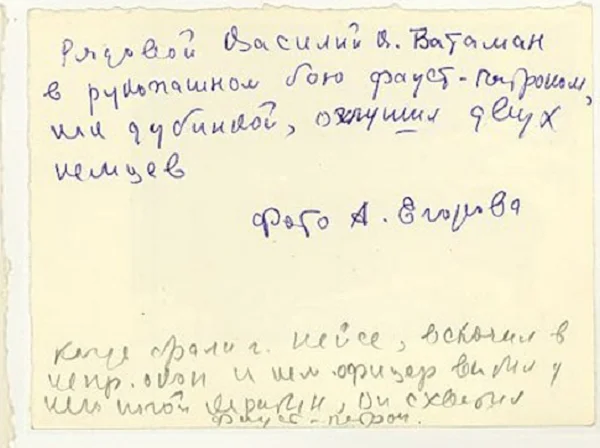 Рядовой Василий В. Ватаман
в рукопашном бою фауст-патроном,
как дубинкой, оглушил двух
немцев
Фото А. Егорова
Когда брали г. Нейсе, вскочил в
непр. окоп и нем. офицер выбил у
него ногой карабин, он схватил
фауст-патрон.